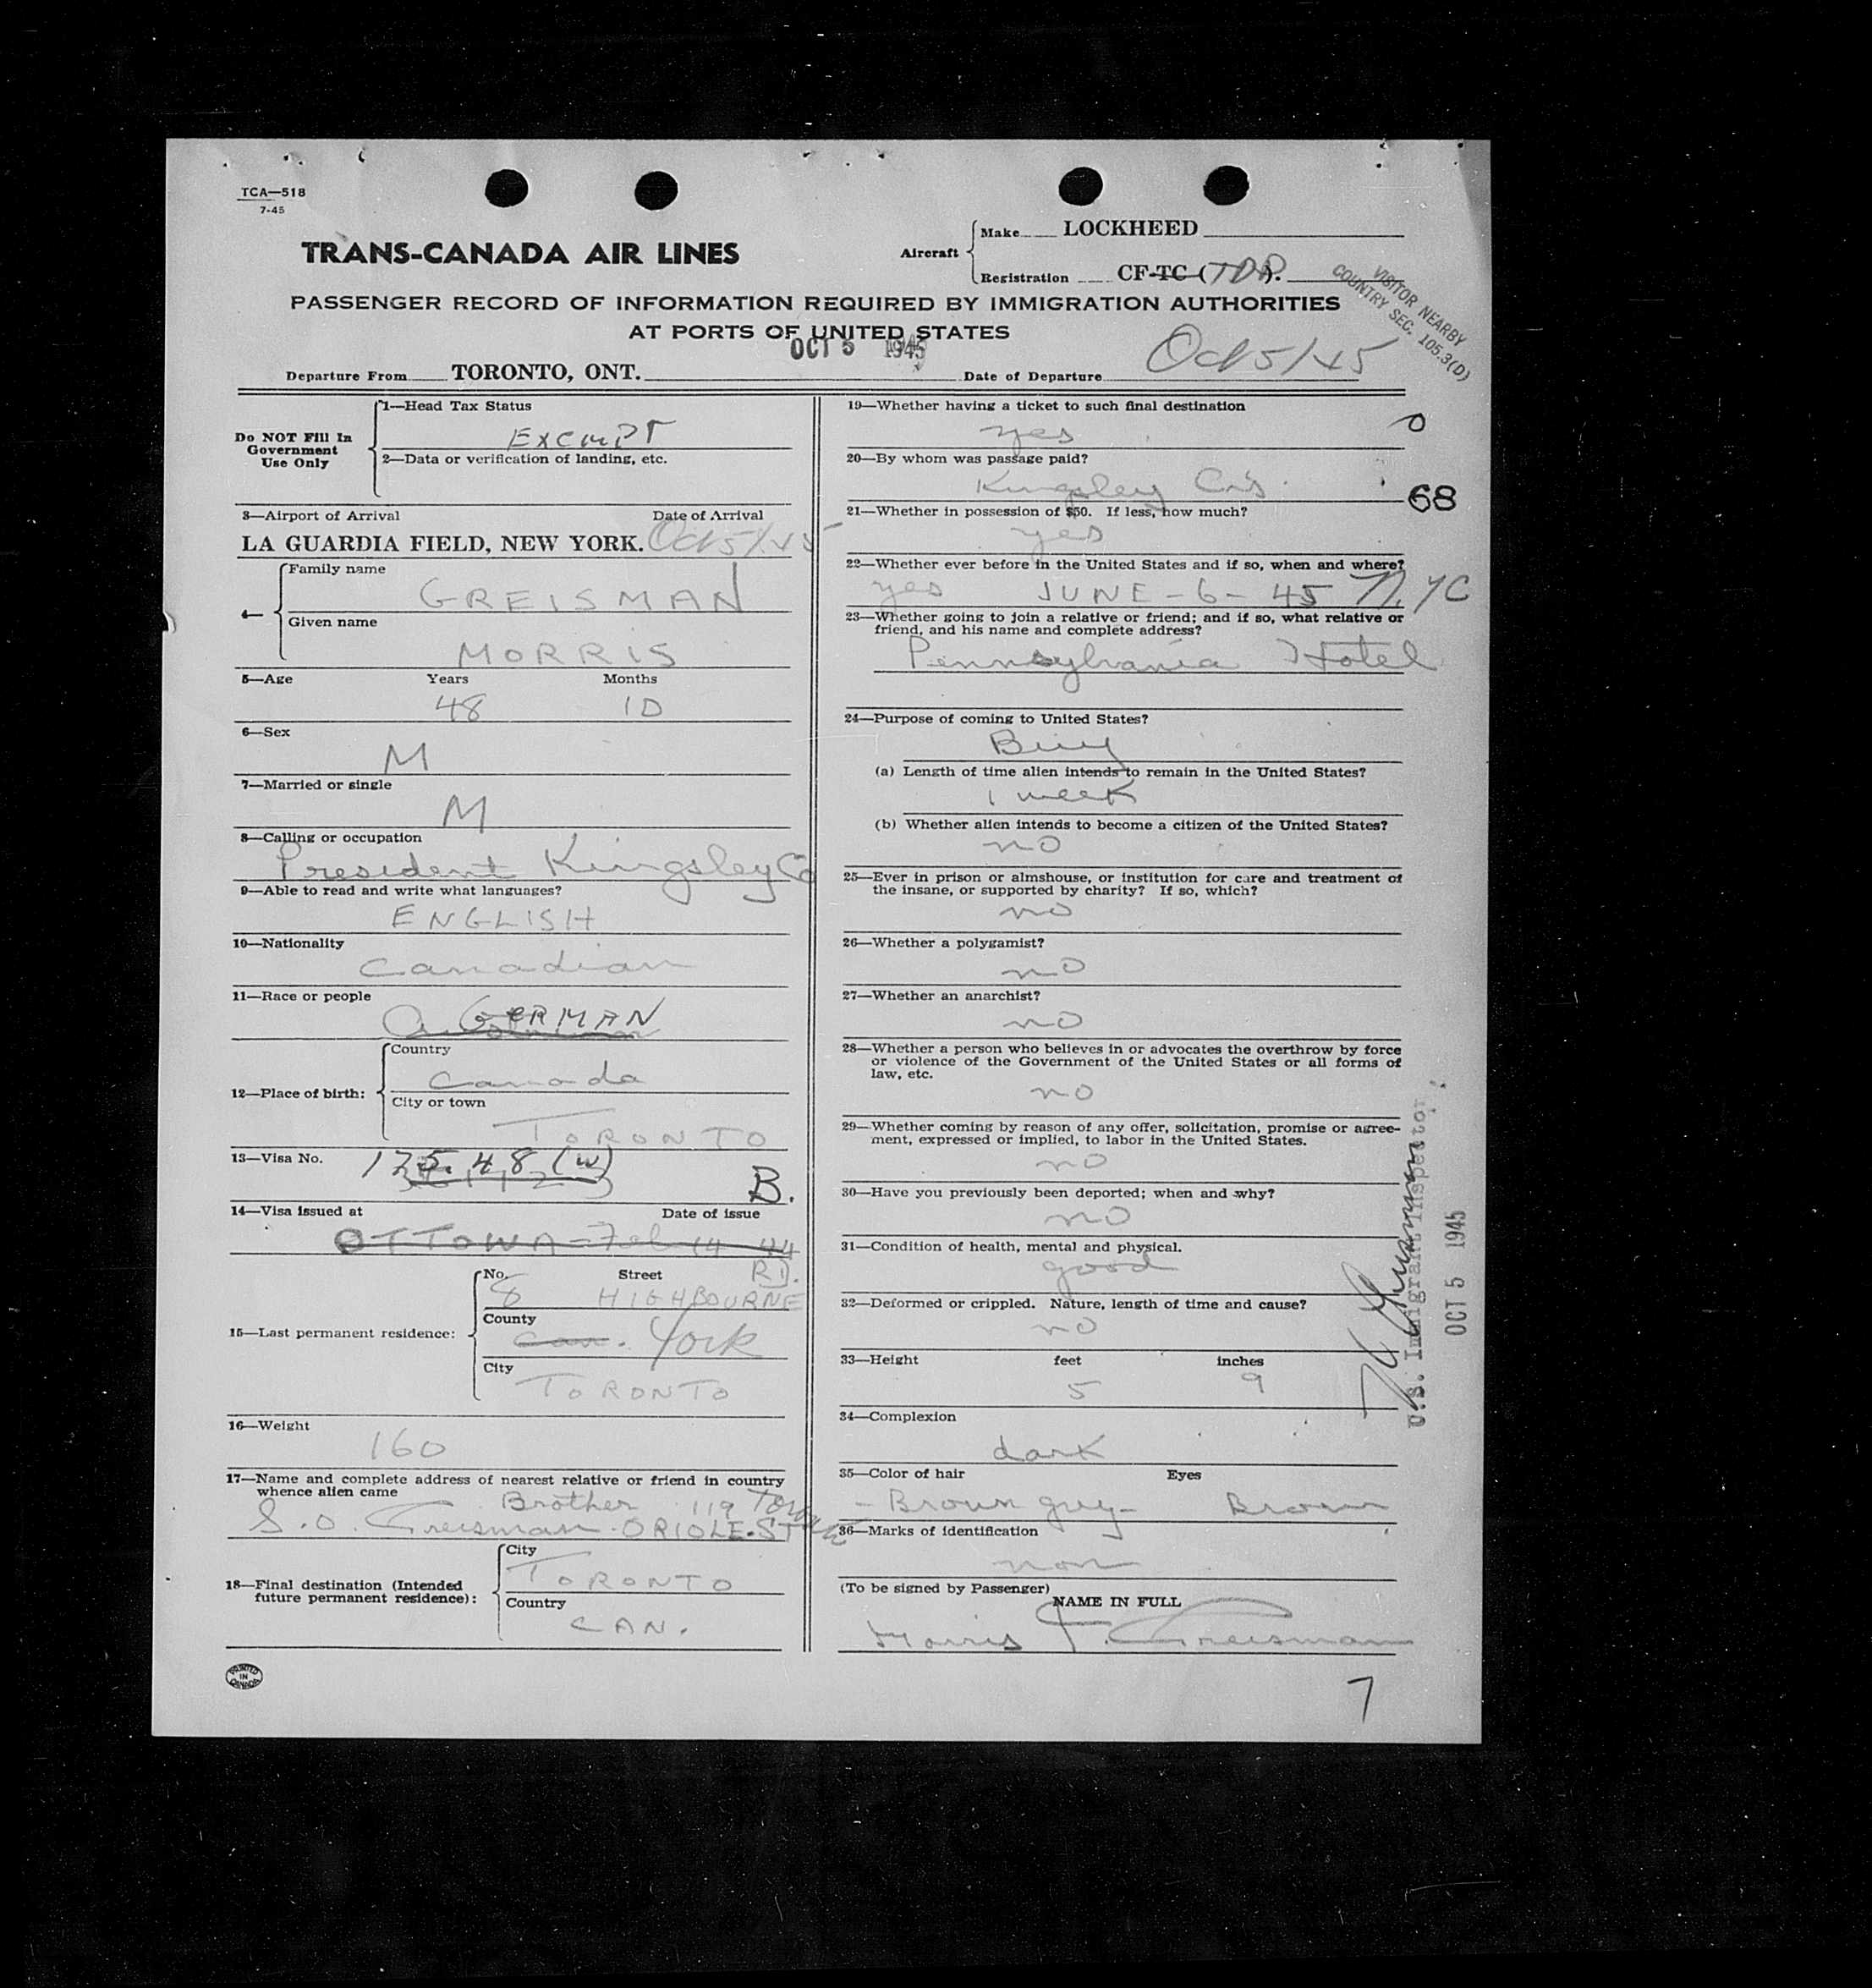 TCA—518
7-45
TRANS-CANADA AIR LINES
Aircraft
Make LOCKHEED
Registration CF-TC (TDP).
VISITOR NEARBY
COUNTRY SEC. 105.3(D)
PASSENGER RECORD OF INFORMATION REQUIRED BY IMMIGRATION AUTHORITIES
AT PORTS OF UNITED STATES
OCT 5 1945
Departure From TORONTO, ONT. Date of Departure Oct 5/45
Do NOT Fill In
Government
Use Only
1—Head Tax Status
EXEMPT
2—Data or verification of landing, etc.
3—Airport of Arrival Date of Arrival
LA GUARDIA FIELD, NEW YORK. Oct 5/45
4—
Family name
GREISMAN
Given name
MORRIS
5—Age Years Months
48 10
6—Sex
M
7—Married or single
M
8—Calling or occupation
President Kingsley Co
9—Able to read and write what languages?
ENGLISH
10—Nationality
Canadian
11—Race or people
GERMAN
12—Place of birth:
Country
Canada
City or town
TORONTO
13—Visa No. 175.48 (W)
B.
14—Visa issued at Date of issue
OTTOWA - Feb 14 44
15—Last permanent residence:
No. Street RD.
8 HIGHBOURNE
County
Can. York
City
TORONTO
16—Weight
160
17—Name and complete address of nearest relative or friend in country
whence alien came
Brother 119
S.O. Greisman. ORIOLE. ST
18—Final destination (Intended
future permanent residence):
City
TORONTO
Country
CAN.
PRINTED
IN
CANADA
19—Whether having a ticket to such final destination
yes
20—By whom was passage paid?
Kingsley
68
21—Whether in possession of $50. If less, how much?
yes
22—Whether ever before in the United States and if so, when and where?
yes JUNE-6-45 N.YC
23—Whether going to join a relative or friend; and if so, what relative or
friend, and his name and complete address?
Pennsylvania Hotel
24—Purpose of coming to United States?
Buy
(a) Length of time alien intends to remain in the United States?
1 week
(b) Whether alien intends to become a citizen of the United States?
no
25—Ever in prison or almshouse, or institution for care and treatment of
the insane, or supported by charity? If so, which?
no
26—Whether a polygamist?
no
27—Whether an anarchist?
no
28—Whether a person who believes in or advocates the overthrow by force
or violence of the Government of the United States or all forms of
law, etc.
no
29—Whether coming by reason of any offer, solicitation, promise or agree-
ment, expressed or implied, to labor in the United States.
no
30—Have you previously been deported; when and why?
no
31—Condition of health, mental and physical.
good
32—Deformed or crippled. Nature, length of time and cause?
no
33—Height feet inches
5 9
34—Complexion
dark
35—Color of hair Eyes
- Brown grey - Brown
36—Marks of identification
non
(To be signed by Passenger)
NAME IN FULL
Morris J. Greisman
7
U.S. Immigrant Inspector
OCT 5 1945